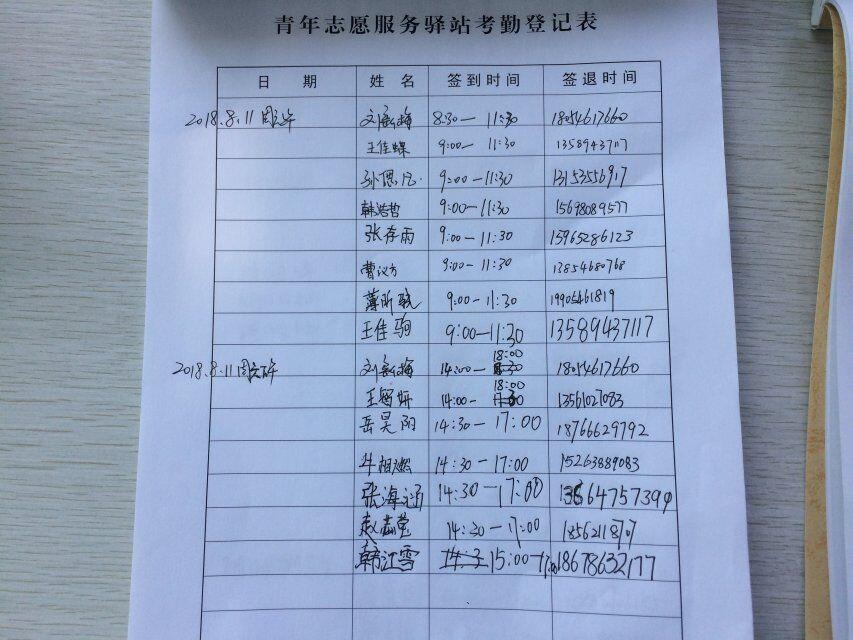 青年志愿服务驿站考勤登记表
日 期 姓 名 签到时间 签退时间
2018.8.11 周六 8:30— 11:30 18054617660
王佳蝶 9:00— 11:30 13589437117
9:00—11:30 13153556917
韩浩哲 9:00—11:30 15698089577
张存雨 9:00—11:30 15965286123
曹议方 9:00—11:30 13854680768
薄昕毓 9:00—11:30 19905461819
王佳驹 9:00—11:30 13589437117
2018.8.11 周六 14:00— 18:00 18054617660
14:00- 18:00 13561027083
岳昊阳 14:30—17:00 18766629792
牛相懿 14:30—17:00 15263889083
张海涵 14:30—17:00
赵蕊莹 14:30—17:00
韩江雪 15:00 18678632177